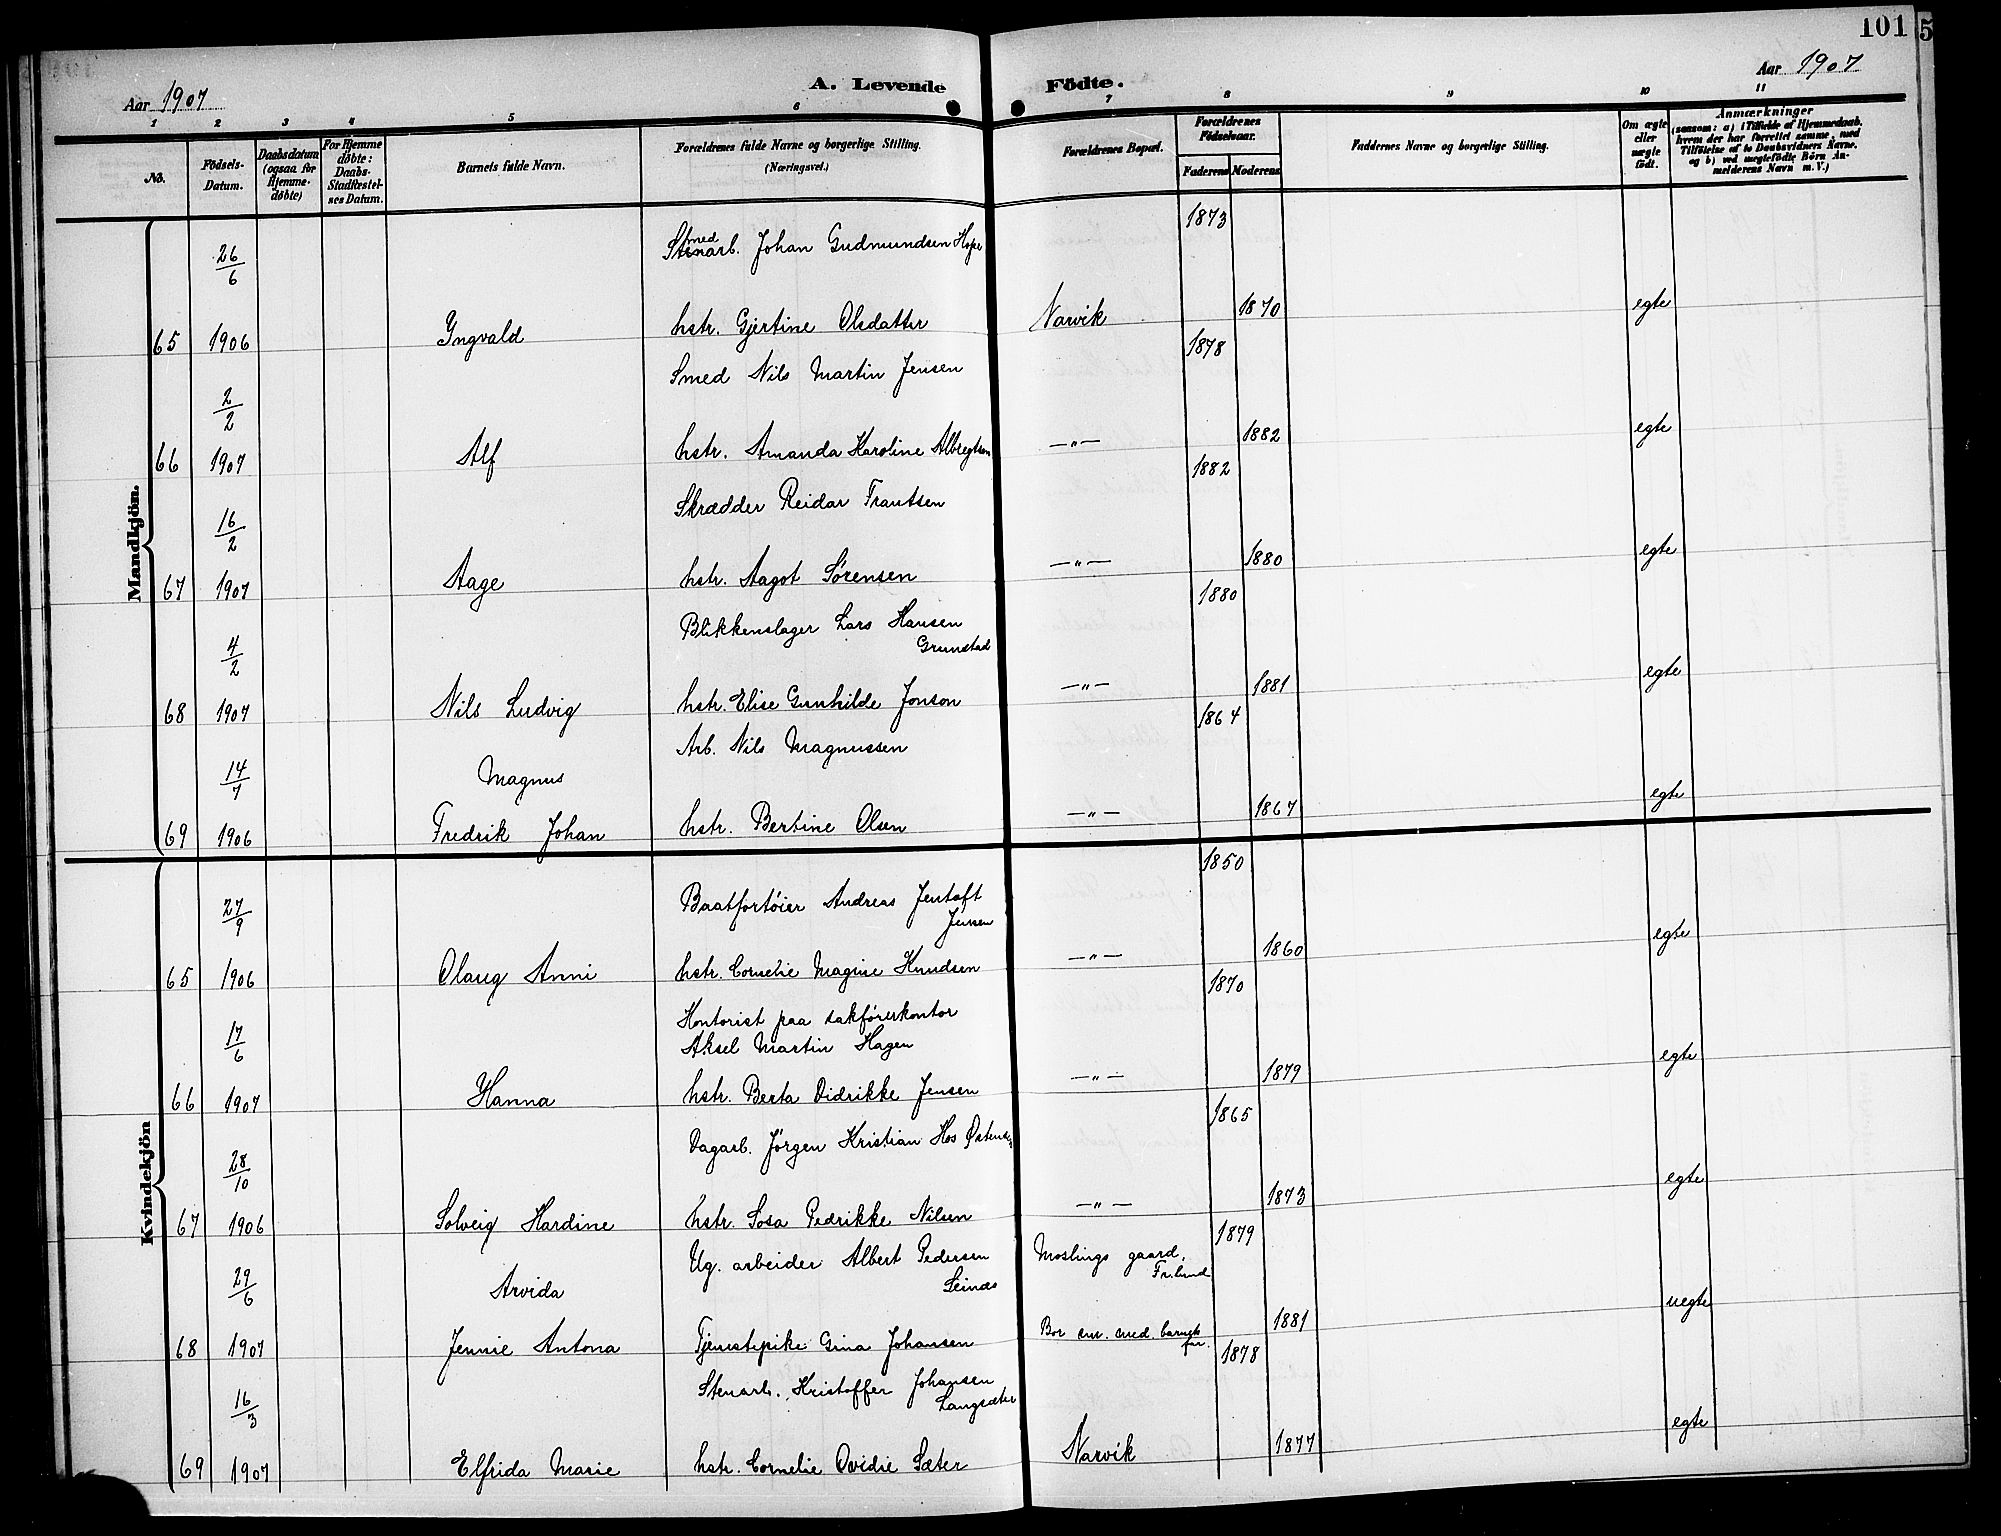 101
5
Aar 1907
A. Levende Födte.
Aar 1907
1 2 3 4 5 6 7 8 9 10 11
No.
Födsels-Datum.
Daabsdatum (ogsaa for Hjemme-döbte)
For Hjemme döbte: Daabs-Stadfæstelses Datum.
Barnets fulde Navn.
Forældrenes fulde Navne og borgerlige Stilling. (Næringsvei.)
Forældrenes Bopæl.
Forældrenes Födselsaar.
Faderens Moderens
Faddernes Navne og borgerlige Stilling.
Om ægte eller uægte födt.
Anmærkninger
(saasom: a) i Tilfælde af Hjemmedaab. hvem der har forrettet samme, med Tilföielse af to Daabsvidners Navne. og b) ved uægtefödte Börn Anmelderens Navn m.V.)
Mandkjön.
26/6 Stenarb. med Johan Gudmundsen Hope 1873
65 1906 Yngvald hstr. Gjertine Olsdatter Narvik 1870 egte
2/2 Smed Nils Martin Jensen 1878
66 1907 Alf hstr. Amanda Karoline Albregtsen —"— 1882 egte
16/2 Skrædder Reidar Frantsen 1882
67 1907 Aage hstr. Aagot Sørensen —"— 1880 egte
4/2 Blikkenslager Lars Hansen Grunstad 1880
68 1907 Nils Ludvig hstr. Elise Gunhilde Jonson —"— 1881 egte
14/7 Magnus Arb. Nils Magnussen 1864
69 1906 Fredrik Johan hstr. Bertine Olsen —"— 1867 egte
Kvindekjön
27/9 Baatfortøier Andreas Jentoft Jensen 1850
65 1906 Olaug Anni hstr. Cornelie Magine Knudsen —"— 1860 egte
17/6 Kontorist paa sakførerkontor Aksel Martin Hagen 1870
66 1907 Hanna hstr. Berta Didrikke Jensen —"— 1879 egte
28/10 Dagarb. Jørgen Kristian Hos 1865
67 1906 Solveig Hardine hstr. Sosa Pedrikke Nilsen —"— 1873 egte
29/6 Arvida Ug. arbeider Albert Pedersen Leines Moslings gaard, Fr.lund 1879
68 1907 Jennie Antona Tjenestepike Gina Johansen Bor sm. med barnets far. 1881 uegte
16/3 Stenarb. Kristoffer Johansen Langsæter 1878
69 1907 Elfrida Marie hstr. Cornelie Ovidie Sæter Narvik 1877 egte